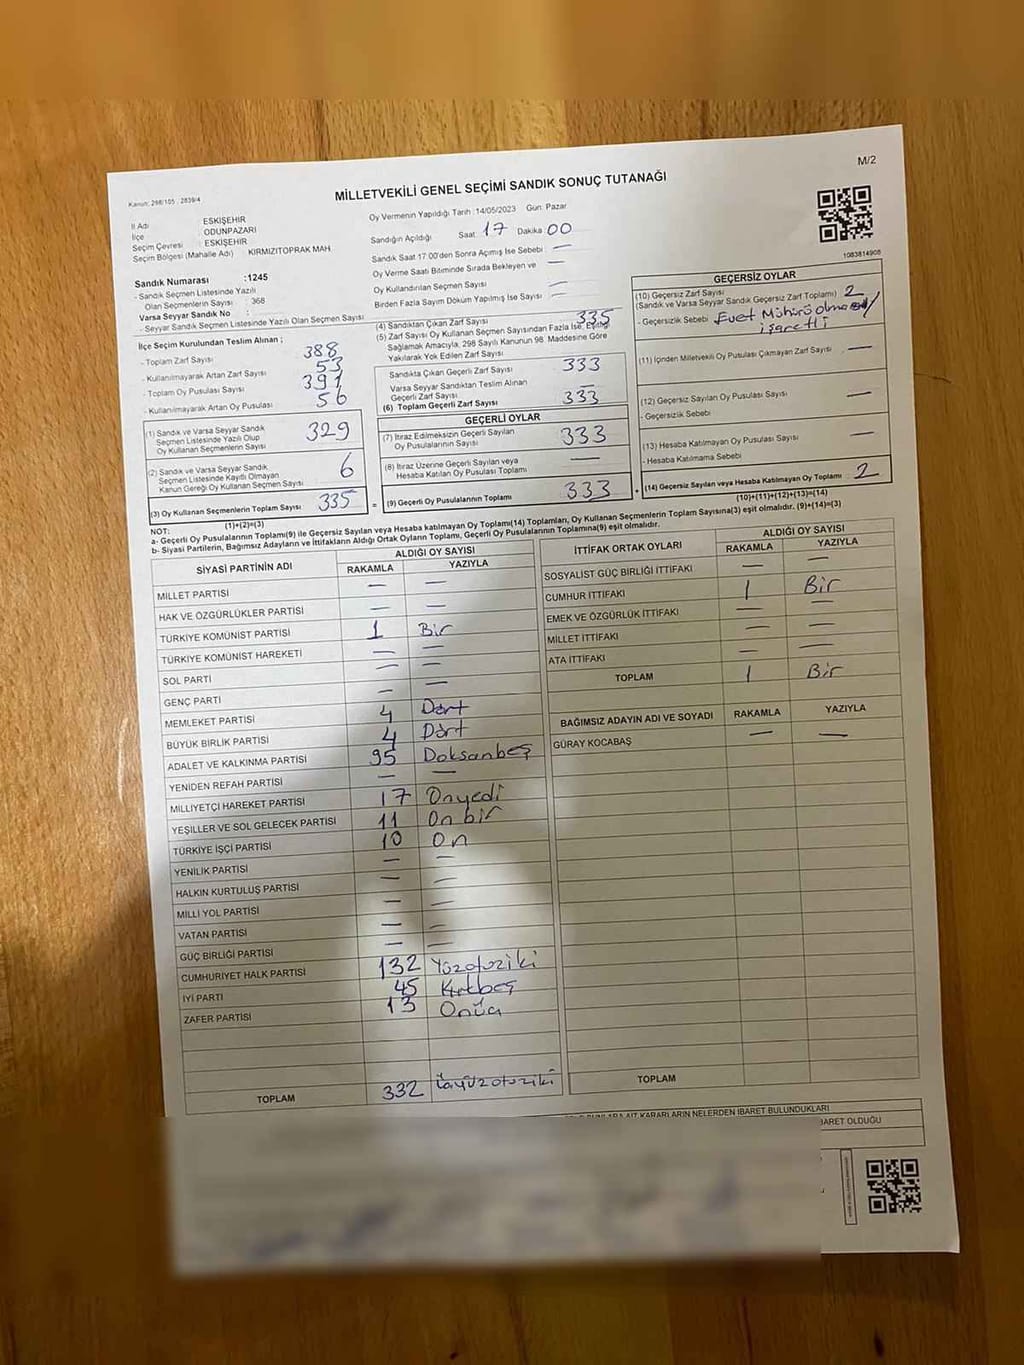 M/2
Kanun: 298/105 , 2839/4
MİLLETVEKİLİ GENEL SEÇİMİ SANDIK SONUÇ TUTANAĞI
İl Adı : ESKİŞEHİR
İlçe : ODUNPAZARI
Seçim Çevresi : ESKİŞEHİR
Seçim Bölgesi (Mahalle Adı) : KIRMIZITOPRAK MAH.
Sandık Numarası :1245
- Sandık Seçmen Listesinde Yazılı
Olan Seçmenlerin Sayısı : 368
Varsa Seyyar Sandık No :
- Seyyar Sandık Seçmen Listesinde Yazılı Olan Seçmen Sayısı
Oy Vermenin Yapıldığı Tarih :14/05/2023 Gün: Pazar
Sandığın Açıldığı Saat 17 Dakika 00
Sandık Saat 17:00'den Sonra Açımış İse Sebebi : —
Oy Verme Saati Bitiminde Sırada Bekleyen ve —
Oy Kullandırılan Seçmen Sayısı : —
Birden Fazla Sayım Döküm Yapılmış İse Sayısı : —
1083814908
İlçe Seçim Kurulundan Teslim Alınan ;
- Toplam Zarf Sayısı 388
- Kullanılmayarak Artan Zarf Sayısı 53
- Toplam Oy Pusulası Sayısı 391
- Kullanılmayarak Artan Oy Pusulası 56
(1) Sandık ve Varsa Seyyar Sandık
Seçmen Listesinde Yazılı Olup
Oy Kullanan Seçmenlerin Sayısı 329
(2) Sandık ve Varsa Seyyar Sandık
Seçmen Listesinde Kayıtlı Olmayan
Kanun Gereği Oy Kullanan Seçmen Sayısı 6
(3) Oy Kullanan Seçmenlerin Toplam Sayısı 335 =
(1)+(2)=(3)
(4) Sandıktan Çıkan Zarf Sayısı 335
(5) Zarf Sayısı Oy Kullanan Seçmen Sayısından Fazla İse, Eşitliği
Sağlamak Amacıyla, 298 Sayılı Kanunun 98. Maddesine Göre
Yakılarak Yok Edilen Zarf Sayısı
Sandıkta Çıkan Geçerli Zarf Sayısı 333
Varsa Seyyar Sandıktan Teslim Alınan
Geçerli Zarf Sayısı —
(6) Toplam Geçerli Zarf Sayısı 333
GEÇERLİ OYLAR
(7) İtiraz Edilmeksizin Geçerli Sayılan
Oy Pusulalarının Sayısı 333
(8) İtiraz Üzerine Geçerli Sayılan veya
Hesaba Katılan Oy Pusulası Toplamı —
(9) Geçerli Oy Pusulalarının Toplamı 333 +
GEÇERSİZ OYLAR
(10) Geçersiz Zarf Sayısı
(Sandık ve Varsa Seyyar Sandık Geçersiz Zarf Toplamı) 2
- Geçersizlik Sebebi : Evet Mühürü olma
işaretti
(11) İçinden Milletvekili Oy Pusulası Çıkmayan Zarf Sayısı —
(12) Geçersiz Sayılan Oy Pusulası Sayısı —
- Geçersizlik Sebebi
(13) Hesaba Katılmayan Oy Pusulası Sayısı —
- Hesaba Katılmama Sebebi
(14) Geçersiz Sayılan veya Hesaba Katılmayan Oy Toplamı : 2
(10)+(11)+(12)+(13)=(14)
NOT:
a- Geçerli Oy Pusulalarının Toplamı(9) ile Geçersiz Sayılan veya Hesaba katılmayan Oy Toplamı(14) Toplamları, Oy Kullanan Seçmenlerin Toplam Sayısına(3) eşit olmalıdır. (9)+(14)=(3)
b- Siyasi Partilerin, Bağımsız Adayların ve İttifakların Aldığı Ortak Oyların Toplamı, Geçerli Oy Pusulalarının Toplamına(9) eşit olmalıdır.
SİYASİ PARTİNİN ADI ALDIĞI OY SAYISI
RAKAMLA YAZIYLA
MİLLET PARTİSİ — —
HAK VE ÖZGÜRLÜKLER PARTİSİ — —
TÜRKİYE KOMÜNİST PARTİSİ 1 Bir
TÜRKİYE KOMÜNİST HAREKETİ — —
SOL PARTİ — —
GENÇ PARTİ — —
MEMLEKET PARTİSİ 4 Dört
BÜYÜK BİRLİK PARTİSİ 4 Dört
ADALET VE KALKINMA PARTİSİ 95 Doksanbeş
YENİDEN REFAH PARTİSİ — —
MİLLİYETÇİ HAREKET PARTİSİ 17 Onyedi
YEŞİLLER VE SOL GELECEK PARTİSİ 11 On bir
TÜRKİYE İŞÇİ PARTİSİ 10 On
YENİLİK PARTİSİ — —
HALKIN KURTULUŞ PARTİSİ — —
MİLLİ YOL PARTİSİ — —
VATAN PARTİSİ — —
GÜÇ BİRLİĞİ PARTİSİ — —
CUMHURİYET HALK PARTİSİ 132 Yüzotuziki
İYİ PARTİ 45 Kırkbeş
ZAFER PARTİSİ 13 Onüç
TOPLAM 332 üçyüzotuziki
İTTİFAK ORTAK OYLARI ALDIĞI OY SAYISI
RAKAMLA YAZIYLA
SOSYALİST GÜÇ BİRLİĞİ İTTİFAKI — —
CUMHUR İTTİFAKI 1 Bir
EMEK VE ÖZGÜRLÜK İTTİFAKI — —
MİLLET İTTİFAKI — —
ATA İTTİFAKI — —
TOPLAM 1 Bir
BAĞIMSIZ ADAYIN ADI VE SOYADI RAKAMLA YAZIYLA
GÜRAY KOCABAŞ — —
TOPLAM
KARARLARIN NELERDEN İBARET BULUNDUKLARI
İBARET OLDUĞU